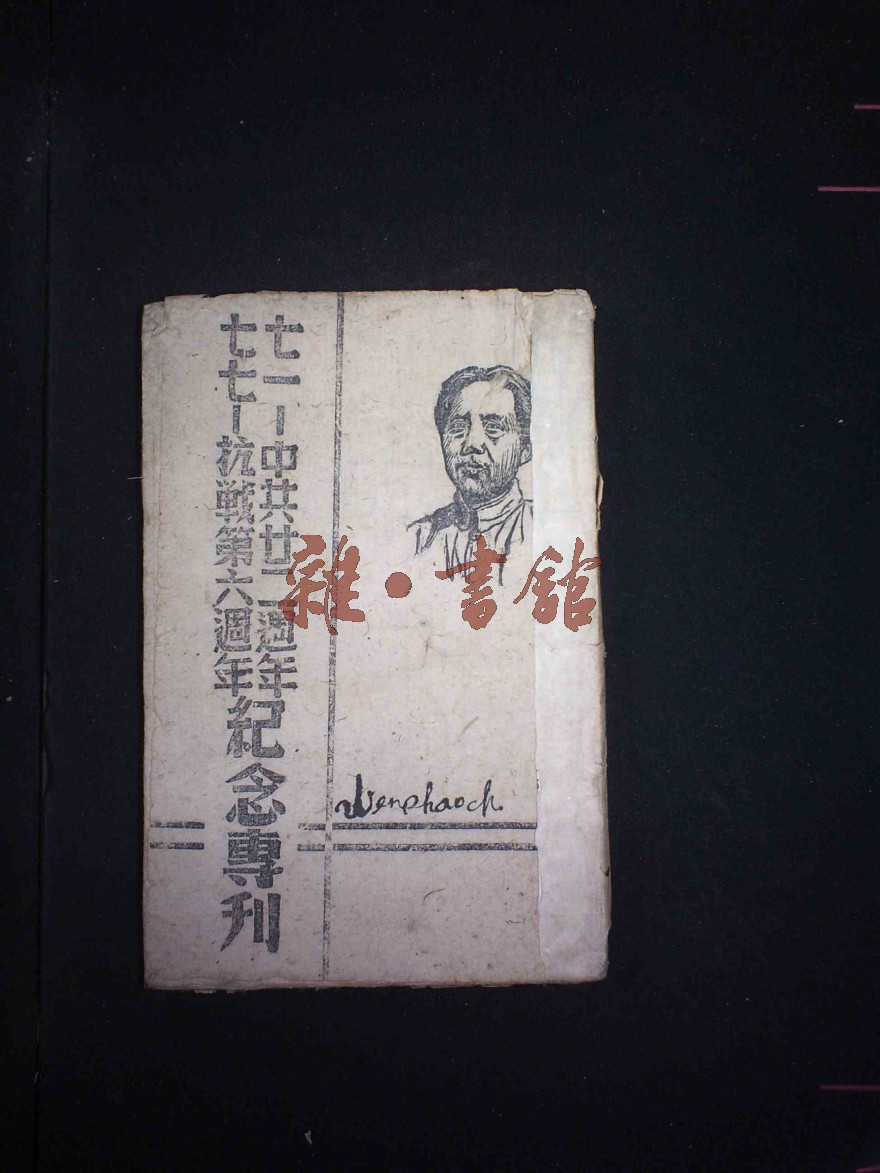 七一—中共廿二週年
七七—抗戰第六週年
紀念專刊
Wenphaoch.
雜·書館